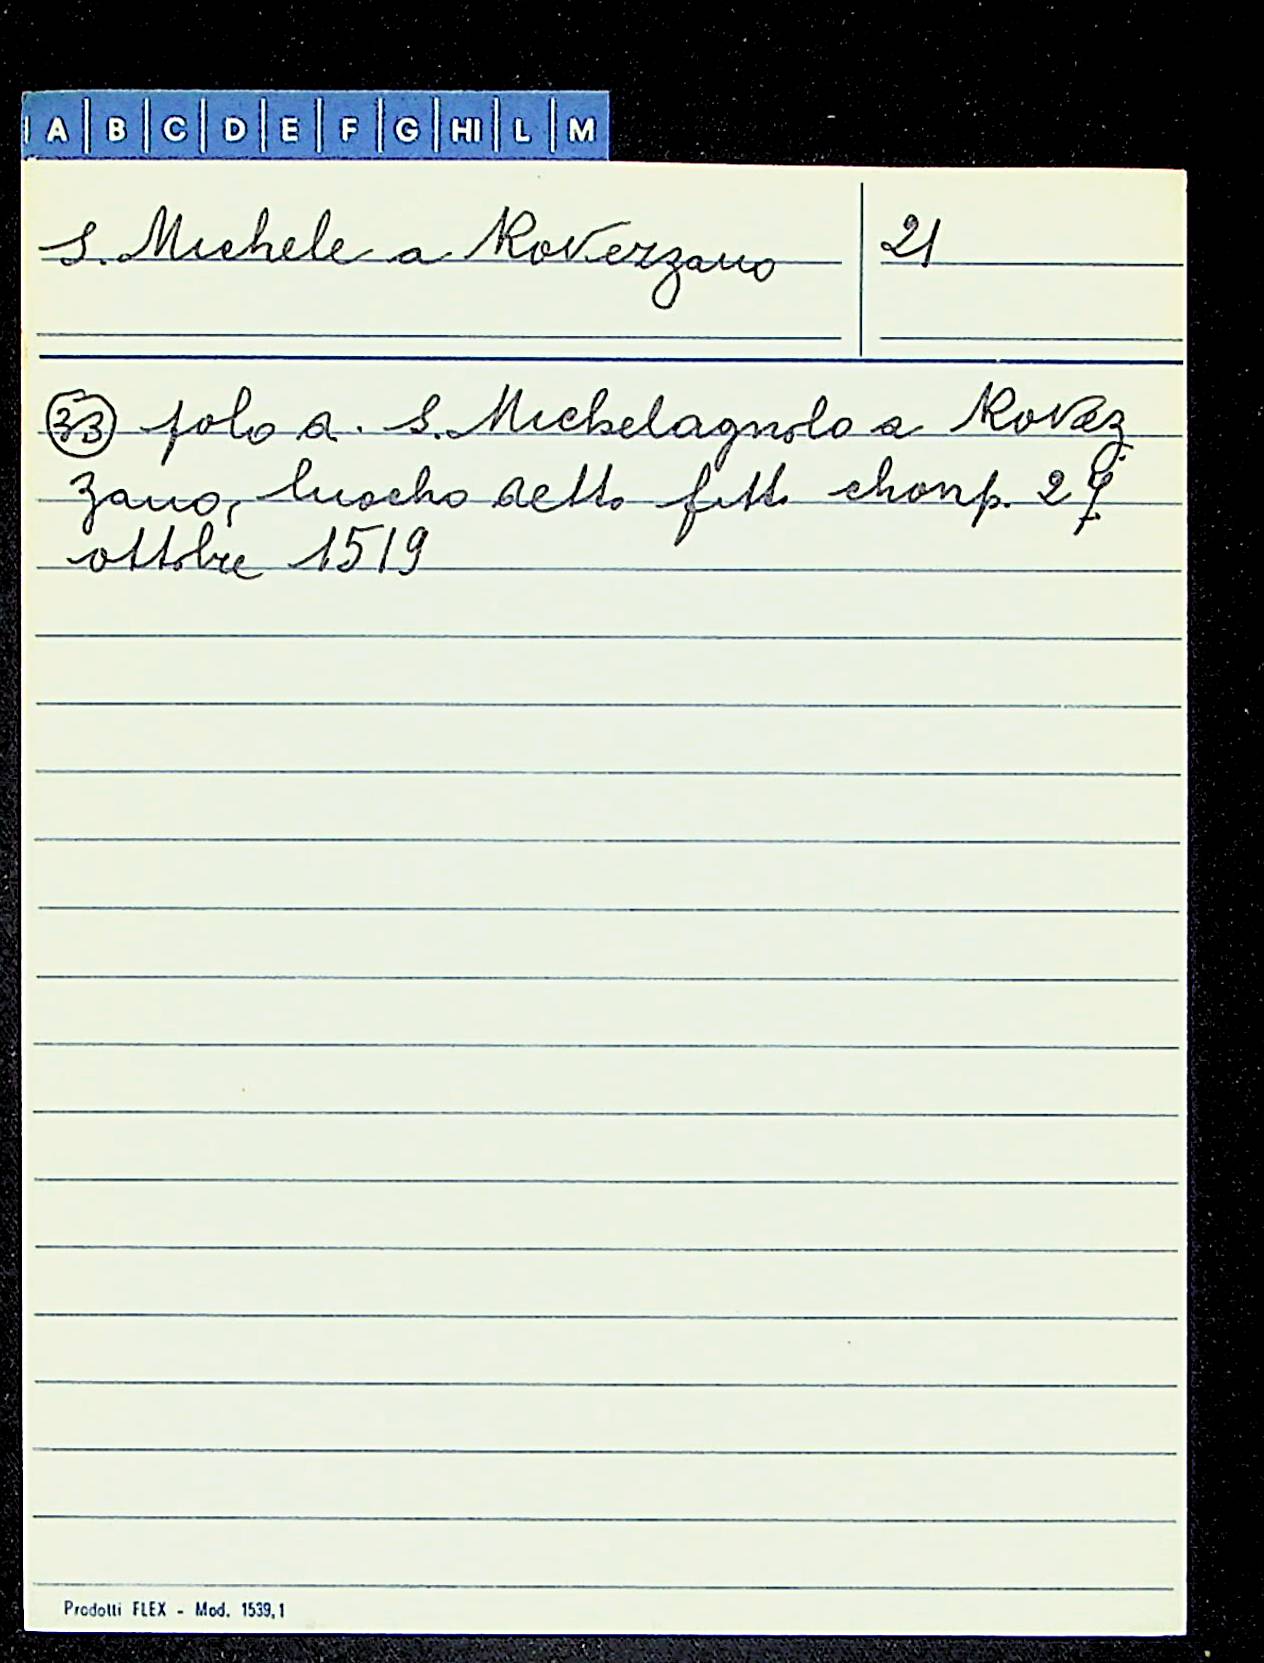 A B C D E F G HI L M
S. Michele a Roverzzano 21
33 polo a. S. Michelagnolo a Rovez
zano, luocho detto fitt. chonp. 27
ottobre 1519
Prodotti FLEX - Mod. 1539,1